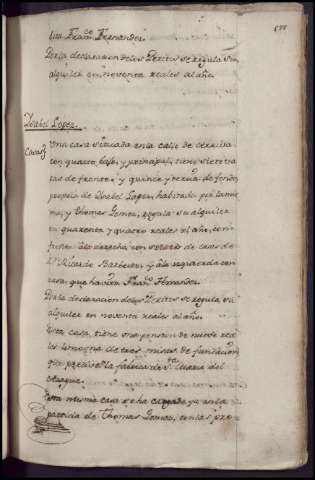 Fran.co Fernandez.
Por la declaracion de los Peritos se regula su
alquiler en noventa reales al año.
Ysabel Lopez.
Casas
Una casa situada en la calle de
con quarto bajo, y principal, tiene siete va-
ras de frente, y quince y tercia de fondo,
propio de Ysabel Lopez, habitada por la mis-
ma, y Thomas Gomez, regula su alquiler
en quarenta y quatro reales al año, con-
fronta a la derecha con solar de casa de
D.n Ricardo y a la izquierda con
casa, que havita Fran.co Fernandez.
Por la declaracion de los Peritos se regula su
alquiler en noventa reales al año.
Esta casa, tiene una pension de nueve rea-
les limosna de tres misas de fundacion,
que para en la fabrica de S.ta Maria del
Esta misma casa se ha cargado ya en la
partida de Thomas Gomez, con las pro-